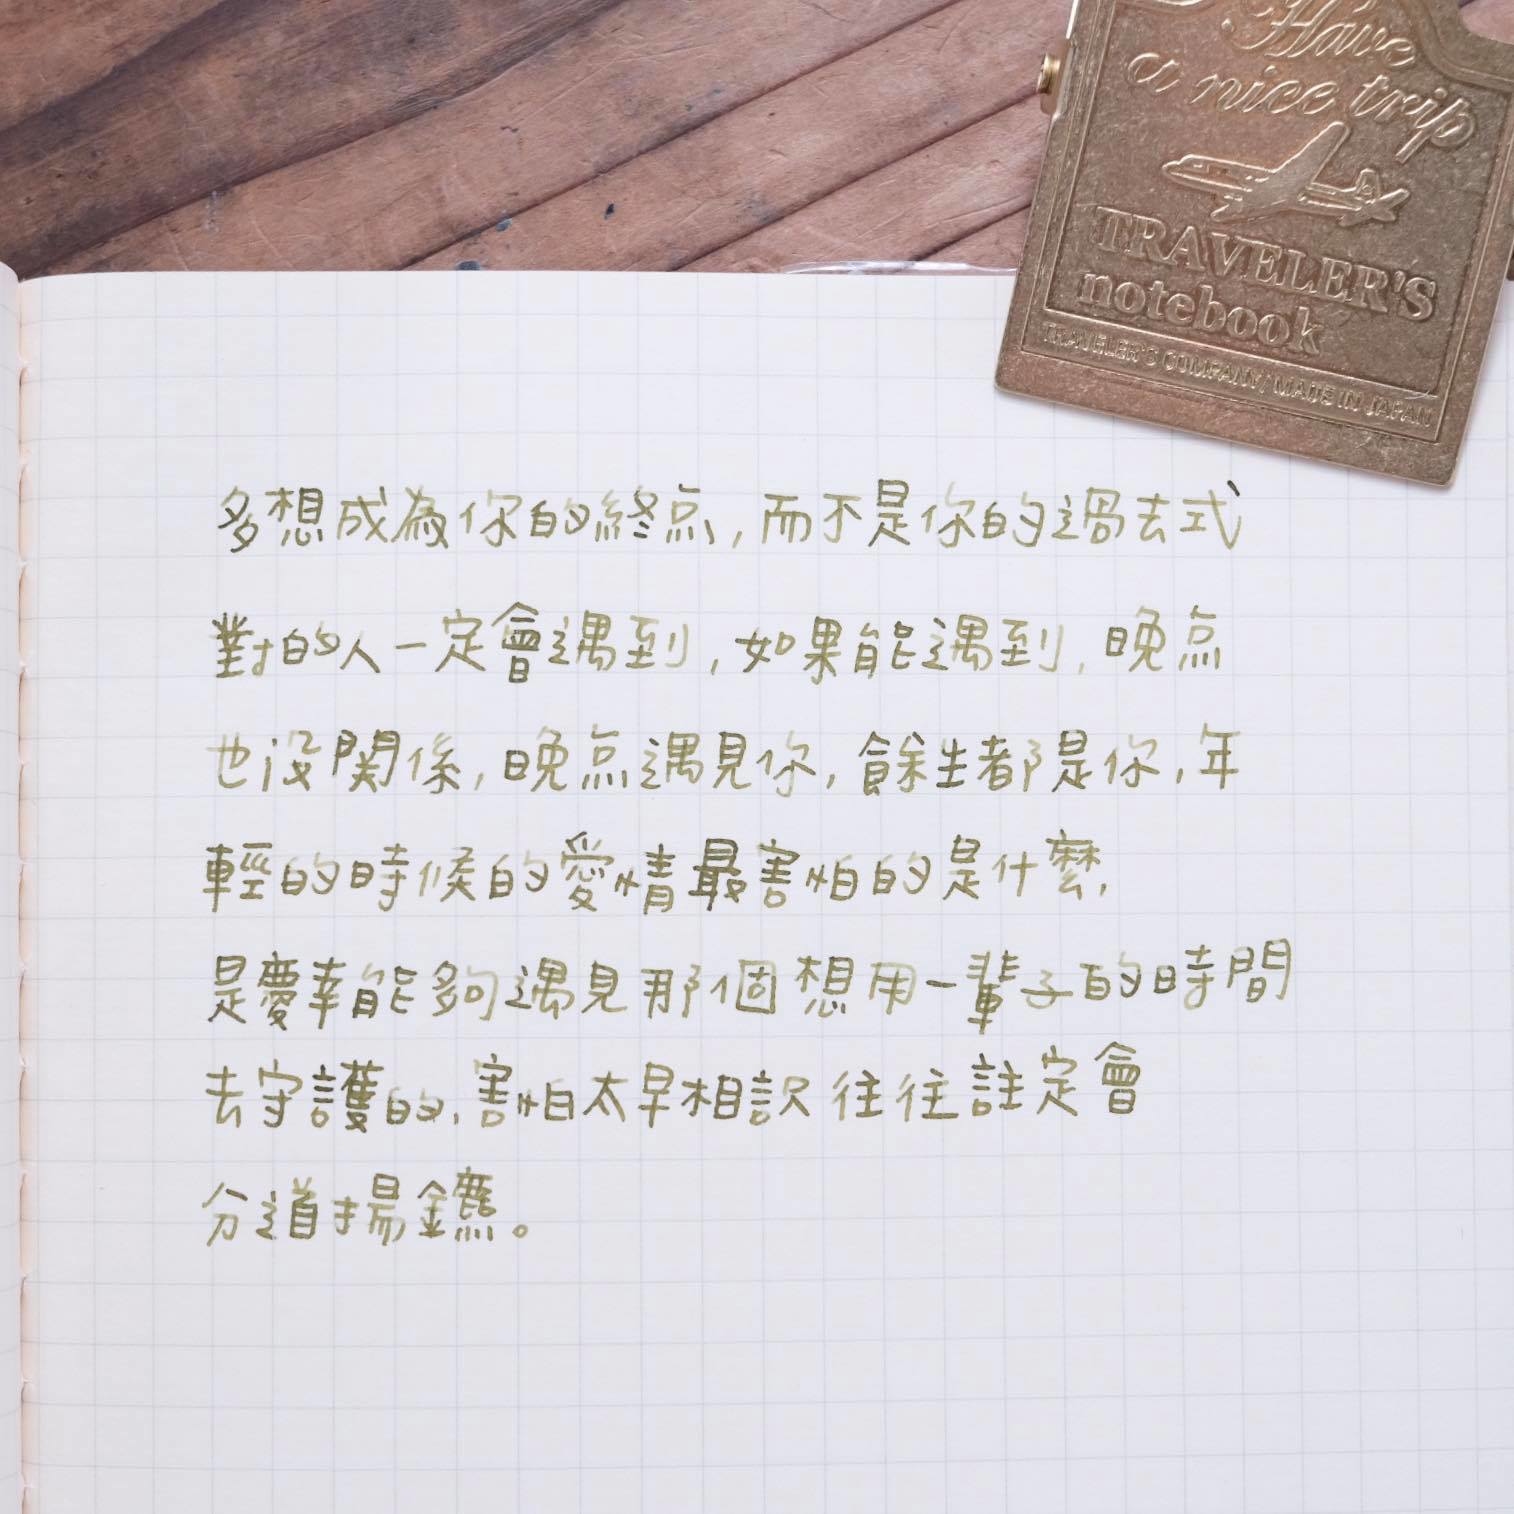 Have
a nice trip
TRAVELER'S
notebook
TRAVELER'S COMPANY / MADE IN JAPAN
多想成為你的終点,而不是你的過去式
對的人一定會遇到,如果能遇到,晚点
也沒関係,晚点遇見你,餘生都是你,年
輕的時候的愛情最害怕的是什麼,
是慶幸能夠遇見那個想用一輩子的時間
去守護的,害怕太早相識往往註定會
分道揚鑣。